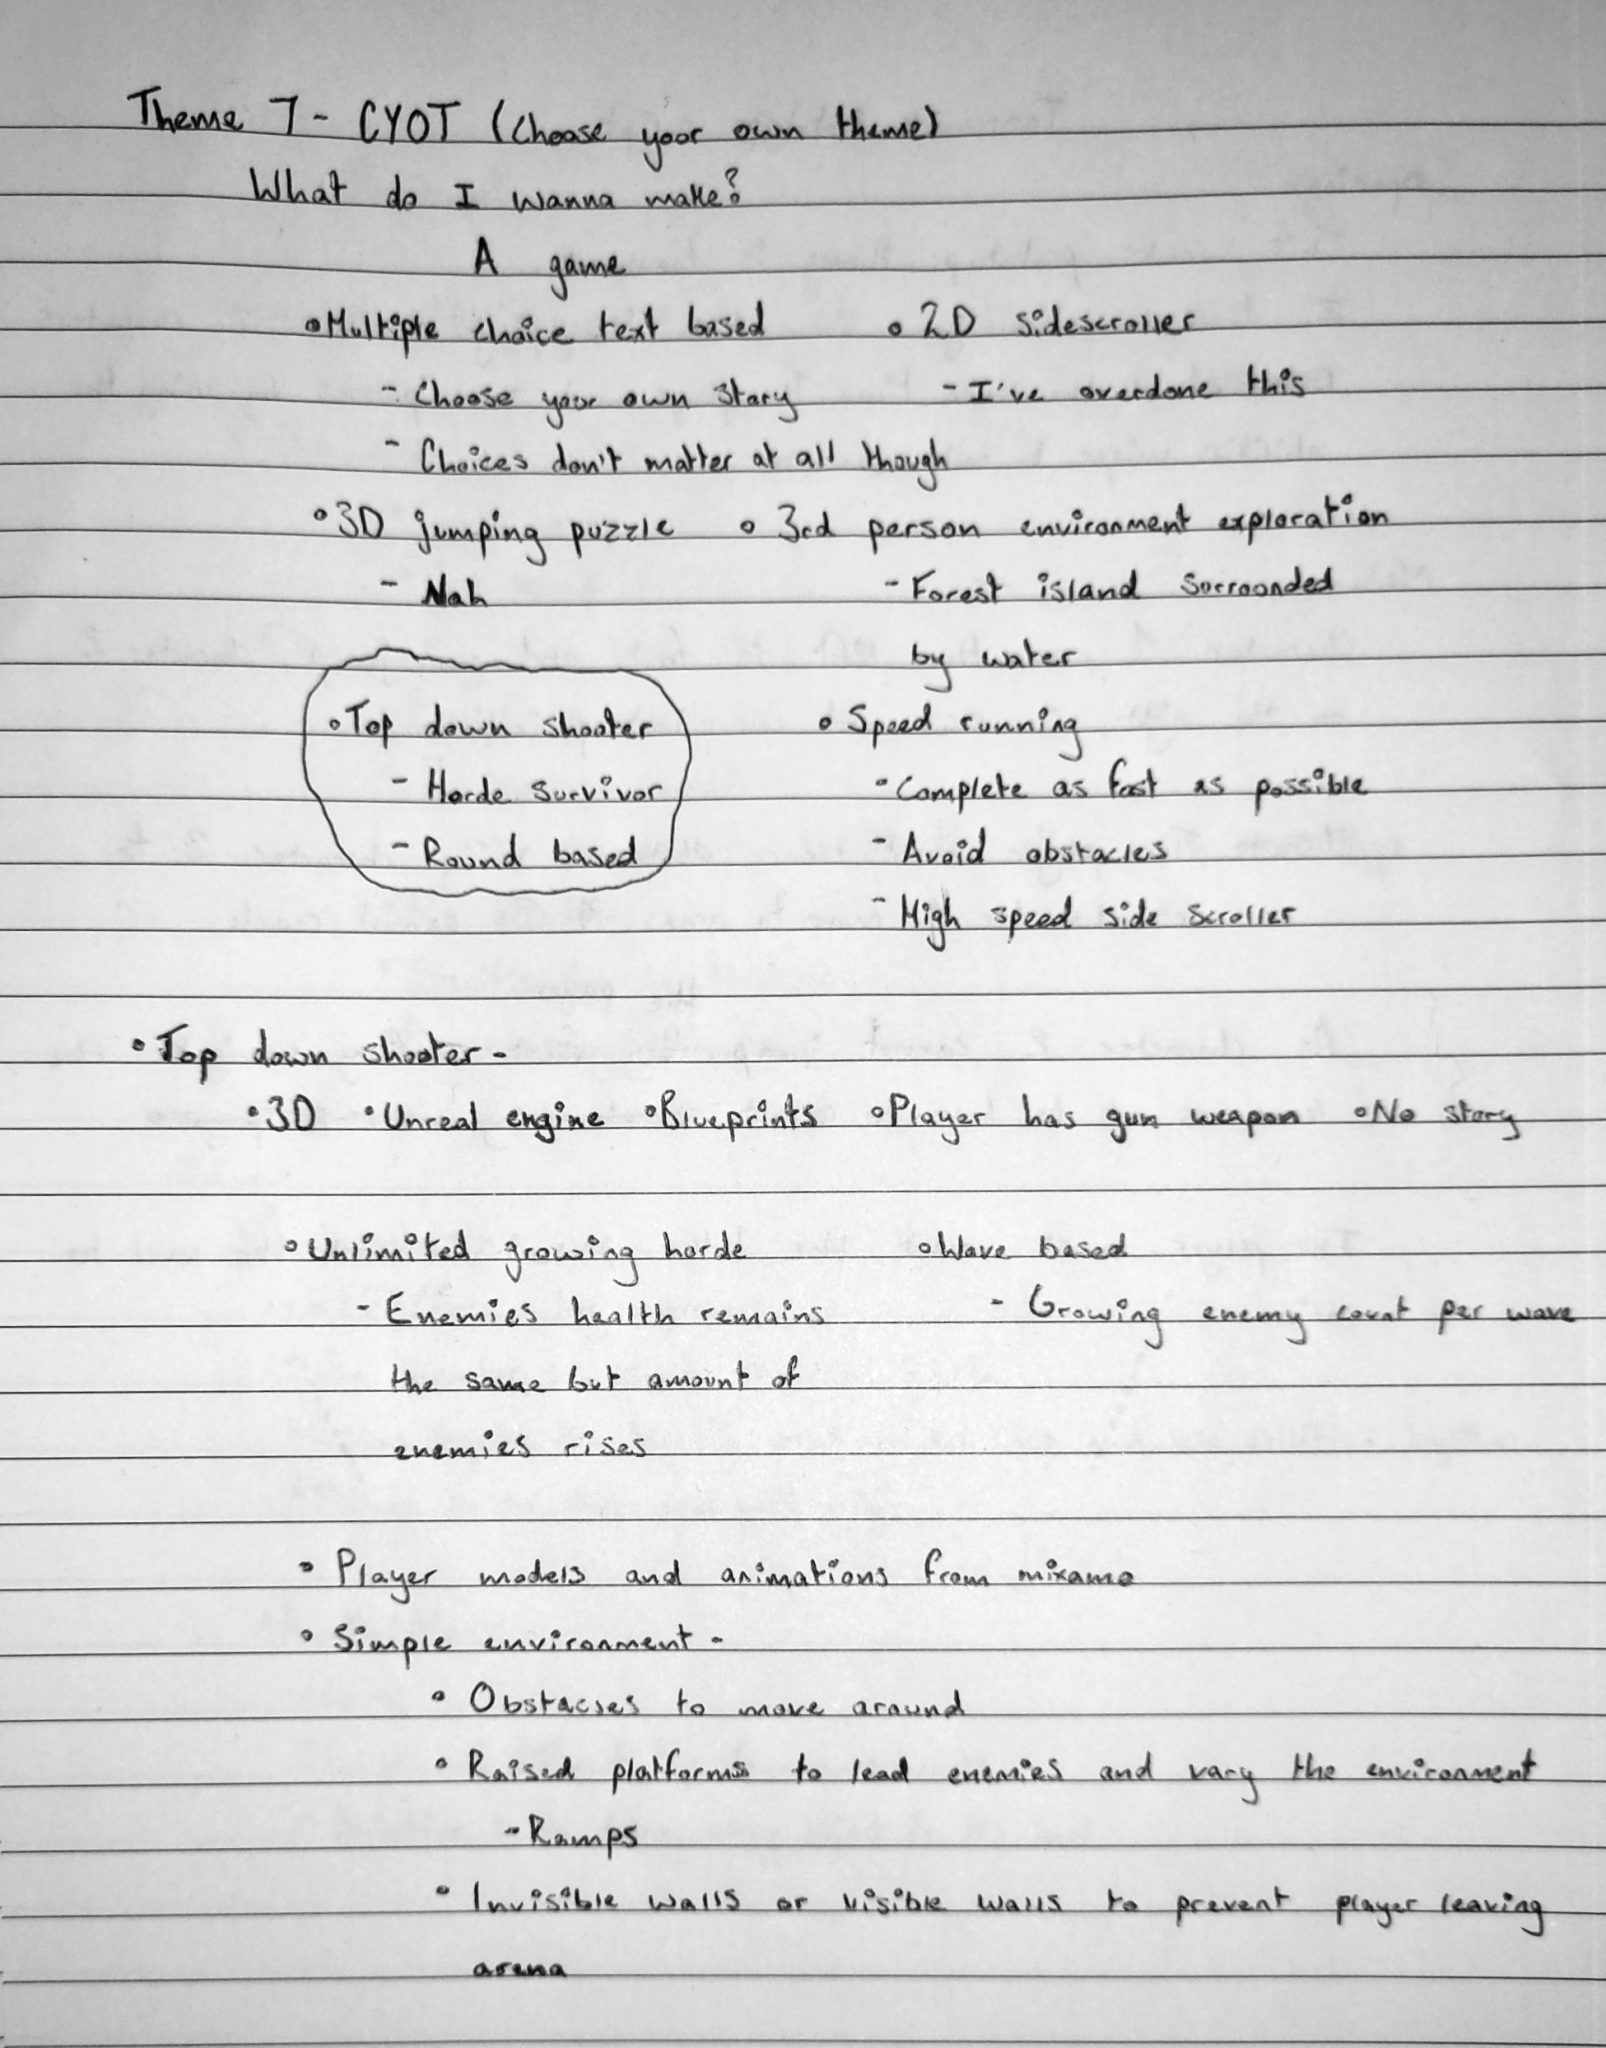 Theme 7 - CYOT (Choose your own theme)
What do I wanna make?
A game
• Multiple choice text based
- Choose your own story
- Choices don't matter at all though
• 2D sidescroller
- I've overdone this
• 3D jumping puzzle
- Nah
• 3rd person environment exploration
- Forest island surrounded
by water
• Top down shooter
- Horde survivor
- Round based
• Speed running
- Complete as fast as possible
- Avoid obstacles
- High speed side scroller
• Top down shooter -
• 3D • Unreal engine • Blueprints • Player has gun weapon • No story
• Unlimited growing horde
- Enemies health remains
the same but amount of
enemies rises
• Wave based
- Growing enemy count per wave
• Player models and animations from mixamo
• Simple environment -
• Obstacles to move around
• Raised platforms to lead enemies and vary the environment
- Ramps
• Invisible walls or visible walls to prevent player leaving
arena